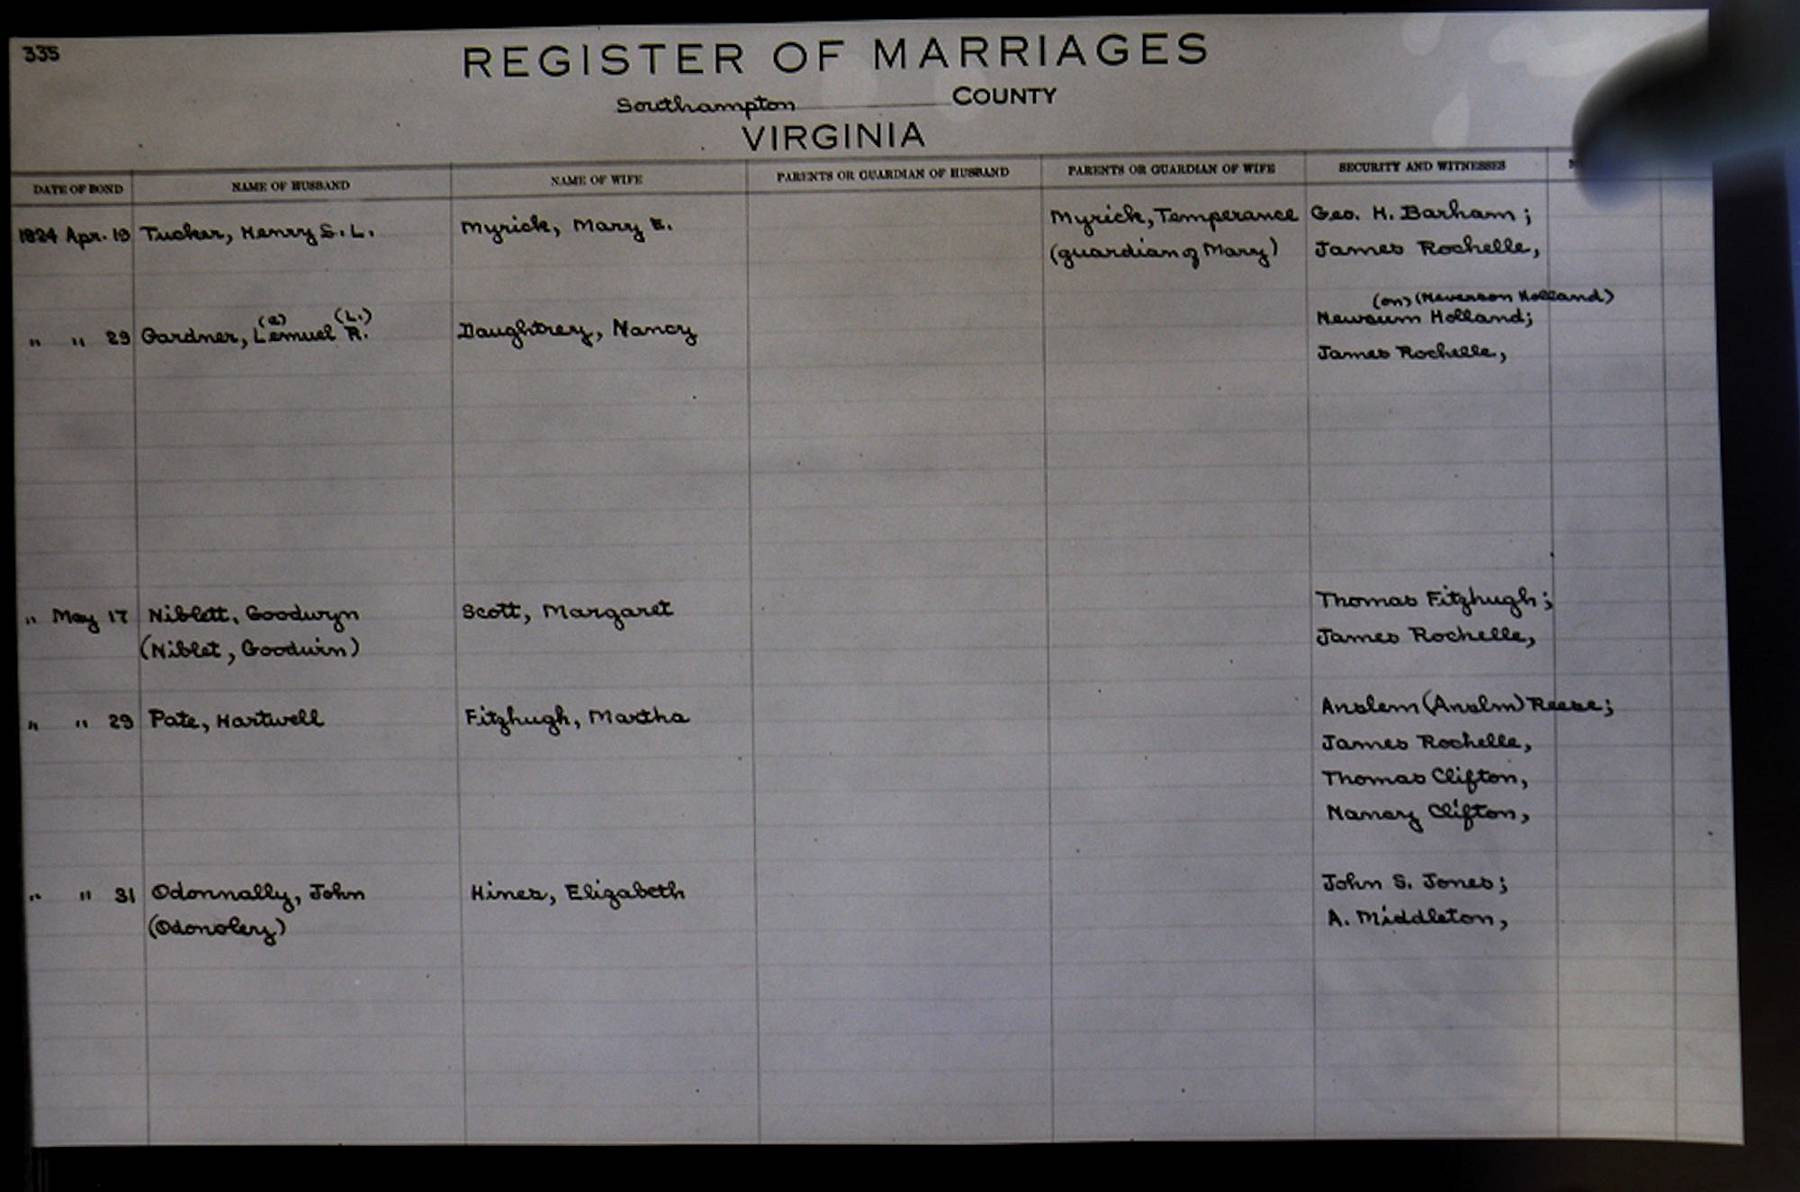 335
REGISTER OF MARRIAGES
Southampton COUNTY
VIRGINIA
DATE OF BOND NAME OF HUSBAND NAME OF WIFE PARENTS OR GUARDIAN OF HUSBAND PARENTS OR GUARDIAN OF WIFE SECURITY AND WITNESSES
1824 Apr. 19 Tucker, Henry S. L. Myrick, Mary E. Myrick, Temperance Geo. H. Barham;
(guardian of Mary) James Rochelle,
(e) (L.) (on) (Neverson Holland)
" " 29 Gardner, Lemuel R. Daughtrey, Nancy Newsum Holland;
James Rochelle,
" May 17 Niblett, Goodwyn Scott, Margaret Thomas Fitzhugh;
(Niblet, Goodwin) James Rochelle,
" " 29 Pate, Hartwell Fitzhugh, Martha Anslem (Anslm) Reese;
James Rochelle,
Thomas Clifton,
Nancy Clifton,
" " 31 Odonnally, John Hines, Elizabeth John S. Jones;
(Odonoley) A. Middleton,